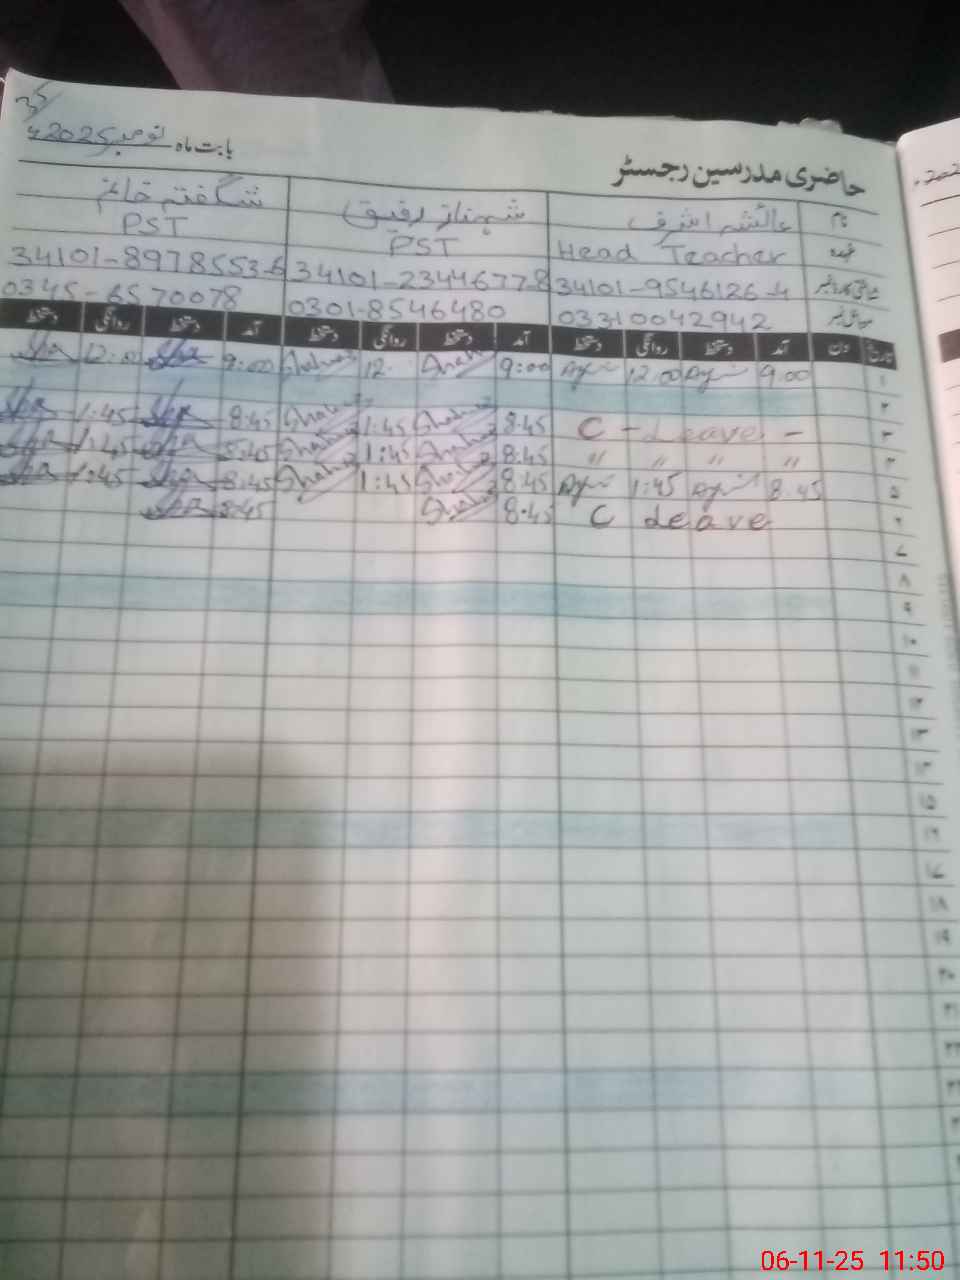 بابت ماہ نومبر 2025ء
حاضری مدرسین رجسٹر
نام عائشہ اشرف شہناز رفیق شگفتہ خانم
عہدہ Head Teacher PST PST
شناختی کارڈ نمبر 34101-9546126-4 34101-2344677-8 34101-8978553-6
موبائل نمبر 03310042942 0301-8546480 0345-6570078
تاریخ دن آمد دستخط روانگی دستخط آمد دستخط روانگی دستخط آمد دستخط روانگی دستخط
۱ 9.00 12.00 9:00 12. 9:00 12.00
۲
۳ C - Leave - 8.45 1:45 8:45 1:45
۴ " " " " 8.45 1:45 8:45 1:45
۵ 8.45 1:45 8:45 1:45 8:45 1:45
۶ C Leave 8.45 8:45
۷
۸
۹
۱۰
۱۱
۱۲
۱۳
۱۴
۱۵
۱۶
۱۷
۱۸
۱۹
۲۰
۲۱
۲۲
۲۳
06-11-25 11:50